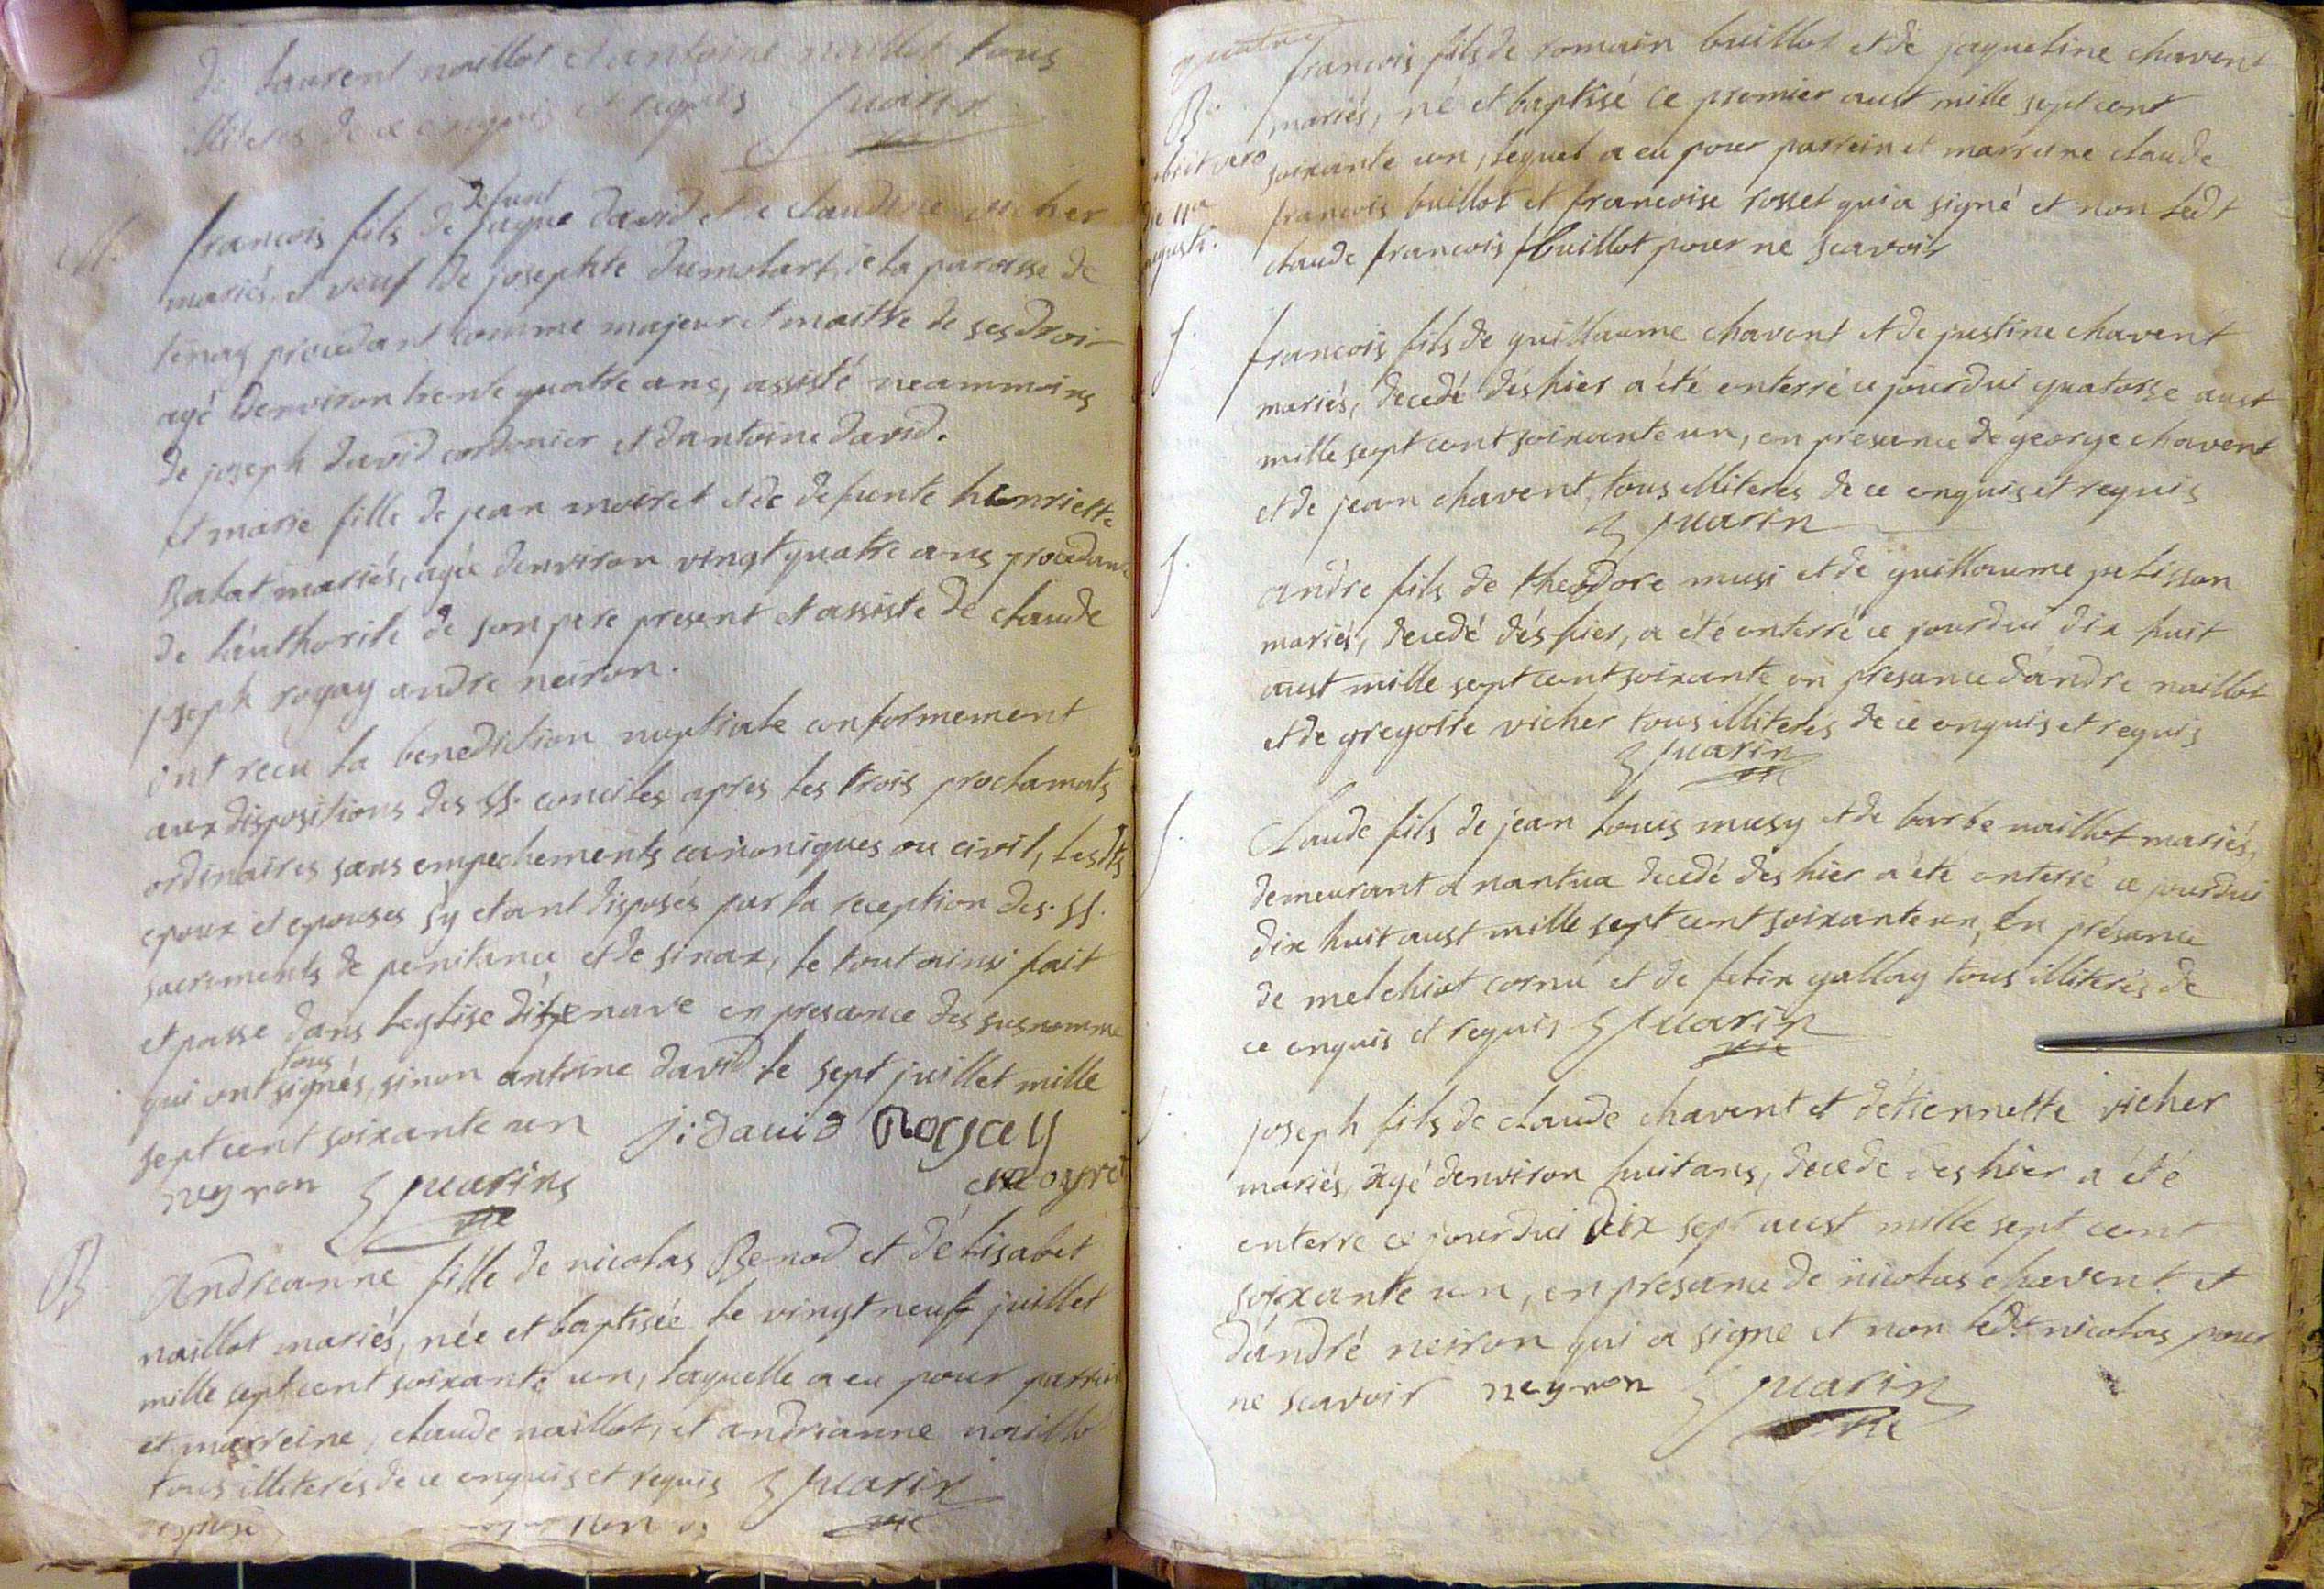 de laurent naillot et antoine naillot tous
illiteres de ce enquis et requis Juarin
vic
M.
defunt
francois fils de jaque david et de claudine vicher
mariés, et veuf de josephte dumolart, de la paroisse de
tenay procedant comme majeur et maitre de ses droit
agé denviron trente quatre ans, assisté neammoins
de joseph david cordonier et dantoine david.
et marie fille de jean moiret et de defunte henriette
Balat mariés, agée denviron vingt quatre ans procedant
de l'authorite de son pere present et assiste de claude
joseph rogay andre neiron.
ont recu la benediction nuptiale conformement
aux dispositions des SS. conciles apres les trois proclamats
ordinaires sans empechements canoniques ou civil, lesdts
epoux et epouses s'y etant disposés par la reception des SS.
sacrements de penitence et de sinax, le tout ainsi fait
et passe dans leglise d'izenave en presance des susnommé
tous
qui ont signés, sinon antoine david le sept juillet mille
sept cent soixante un j: david Rogay
neyron Juarin moyret
vic
B
Andreanne fille de nicolas Benod et d'elisabet
naillot mariés, née et baptisée le vingt neuf juillet
mille sept cent soixante un, laquelle a eu pour parrein
et marreine, claude naillot, et andrianne naillot
tous illiterés de ce enquis et requis Juarin
vic
quatre
B.
francois fils de romain buillot et de jaqueline chavent
mariés, né et baptisé ce premier aust mille sept cent
obiit vero
soixante un, lequel a eu pour parrein et marreine claude
die 11a
francois buillot et francoise rosset qui a signé et non ledt
augusti.
claude francois buillot pour ne scavoir
f.
francois fils de guillaume chavent et de justine chavent
mariés, decedé dés hier a été enterré ce jourdui quatorse aust
mille sept cent soixante un, en presance de george chavent
et de jean chavent, tous illiteres de ce enquis et requis
Juarin
f.
andre fils de theodore musi et de guillaume pelisson
mariés, decedé dés hier, a été enterré ce jourdui dix huit
aust mille sept cent soixante en presance d'andre naillot
et de gregoire vicher tous illiterés de ce enquis et requis
Juarin
vic
f.
Claude fils de jean louis musy et de barbe naillot mariés,
demeurant a nantua decedé des hier a été enterré ce jourdui
dix huit aust mille sept cent soixante un, en presance
de melchiot cornu et de felix gallay tous illiterés de
ce enquis et requis Juarin
vic
f.
joseph fils de claude chavent et d'etiennette vicher
mariés, agé denviron huit ans, decede des hier a été
enterre ce jourdui dix sept aust mille sept cent
soixante un, en presance de nicolas chavent et
d'andré neiron qui a signe et non ledt nicolas pour
ne scavoir neyron Juarin
vic